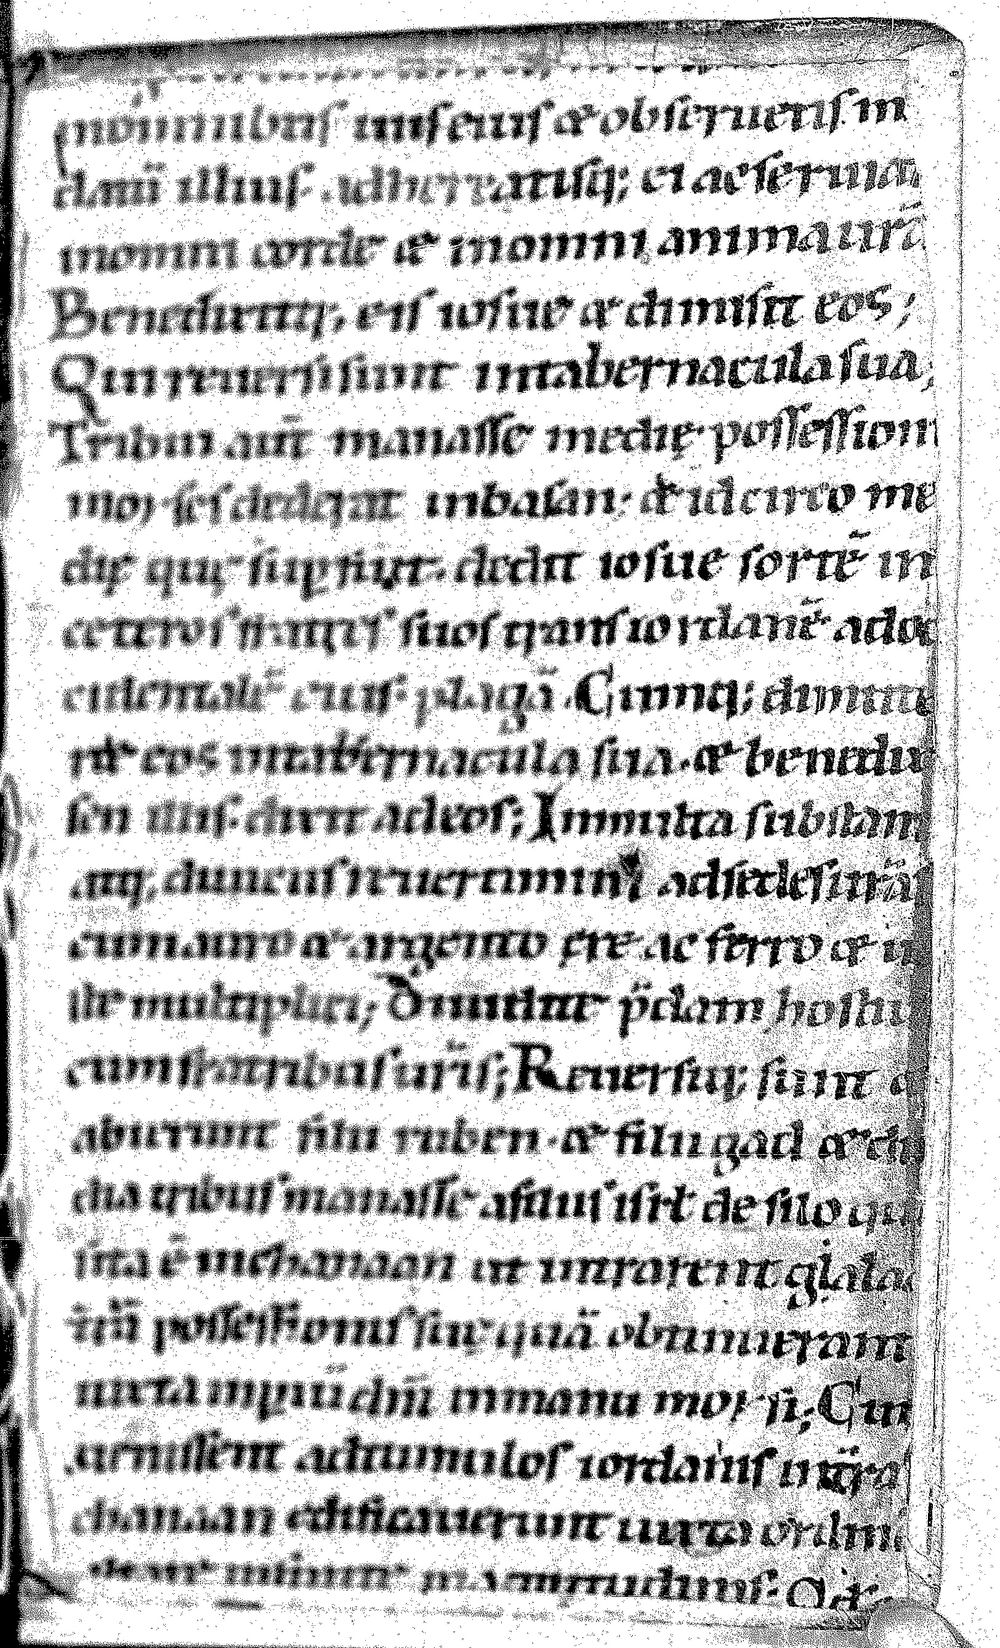 inomnibus uiis eius & obseruetis man
data illius. adhereatisq; ei ac seruia
inomni corde & inomni anima ura
Benedixitq; eis iosue & dimisit eos;
Qui reuersi sunt intabernacula sua;
Tribui aut manasse medie possession
moyses dederat inbasan. & idcirco me
die que supfuit. dedit iosue sorte in
ceteros fratres suos transiordane adoc
cidentale eius plaga. Cumq; dimitte
ret eos intabernacula sua. & benedix
sset illis. dixit adeos; Inmulta substan
atq; diuitiis reuertimini adsedes uras
cum auro & argento ere ac ferro & u
ste multiplici; Diuidite pdam hostiu
cum fratribus uris; Reuersiq; sunt &
abierunt filii ruben. & filii gad & di
dia tribus manasse afiliis isrl de silo que
sita e inchanaan ut intrarent galaad
tra possessionis sue qua obtinuerant
iuxta impiu dni inmanu moysi; Cu
uenissent adtumulos iordanis intra
chanaan edificauerunt iuxta iordane